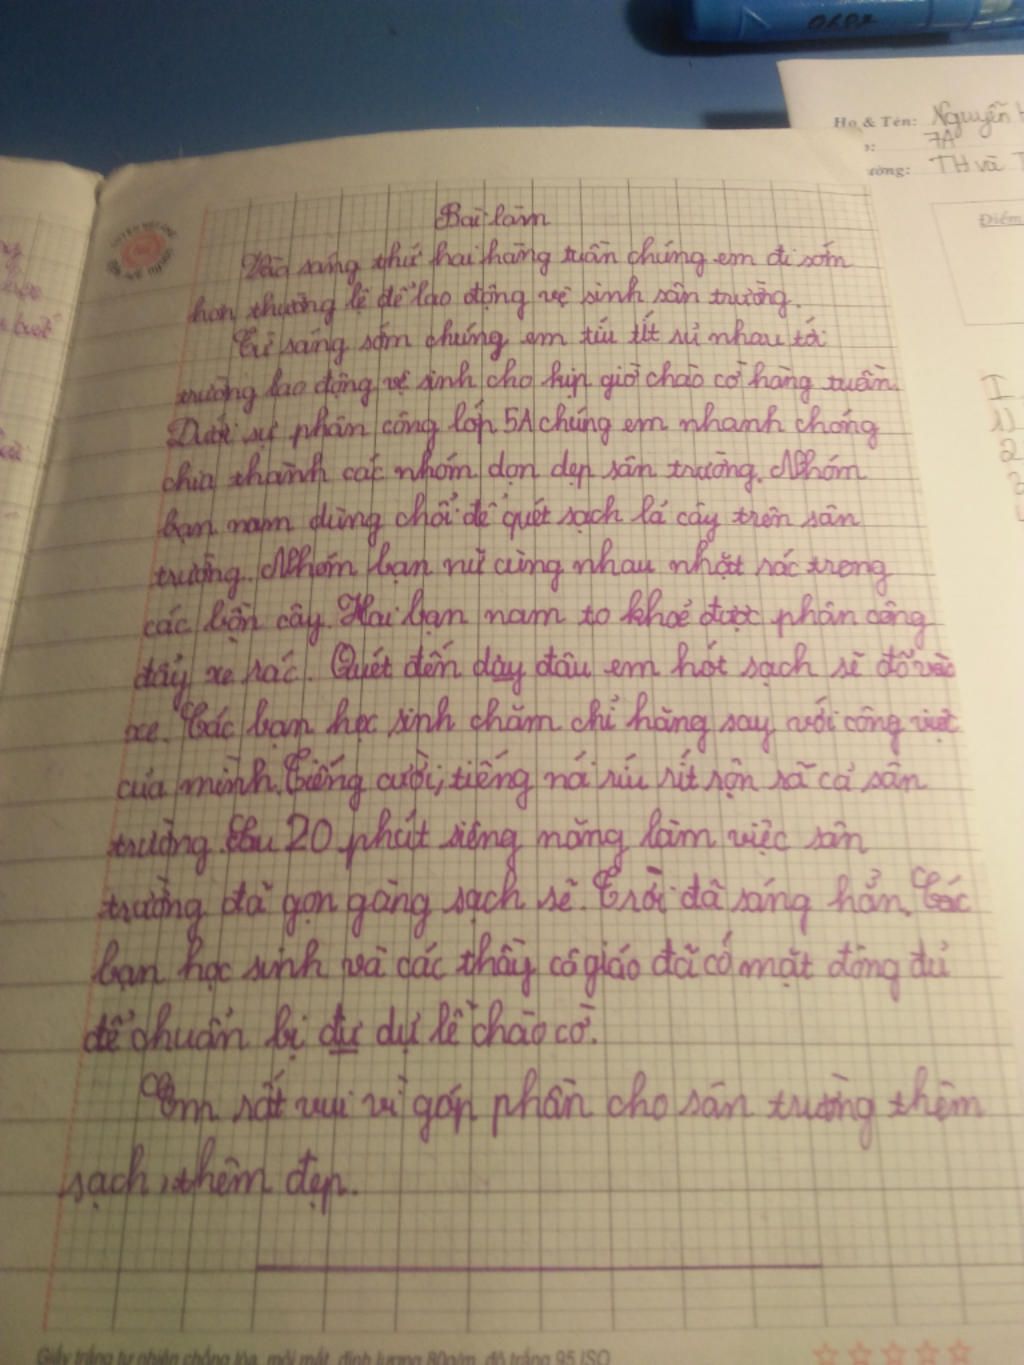 Họ & Tên: Nguyễn
7A
ường: TH và T
Điểm
Bài làm
Vào sáng thứ hai hàng tuần chúng em đi sớm
hơn thường lệ để lao động vệ sinh sân trường.
Từ sáng sớm chúng em tíu tít rủ nhau tới
trường lao động vệ sinh cho kịp giờ chào cờ hàng tuần.
Dưới sự phân công lớp 5A chúng em nhanh chóng
chia thành các nhóm dọn dẹp sân trường. Nhóm
bạn nam dùng chổi để quét sạch lá cây trên sân
trường. Nhóm bạn nữ cùng nhau nhặt rác trong
các bồn cây. Hai bạn nam to khoẻ được phân công
đẩy xe rác. Quét đến đây đâu em hót sạch sẽ đổ vào
xe. Các bạn học sinh chăm chỉ hăng say với công việc
của mình. Tiếng cười, tiếng nói ríu rít rộn rã cả sân
trường. Sau 20 phút siêng năng làm việc sân
trường đã gọn gàng sạch sẽ. Trời đã sáng hẳn. Các
bạn học sinh và các thầy cô giáo đã có mặt đông đủ
để chuẩn bị dự dự lễ chào cờ.
Em rất vui vì góp phần cho sân trường thêm
sạch, thêm đẹp.
Giấy trắng tự nhiên chống lóa, mỏi mắt, định lượng 80g/m, độ trắng 95 ISO